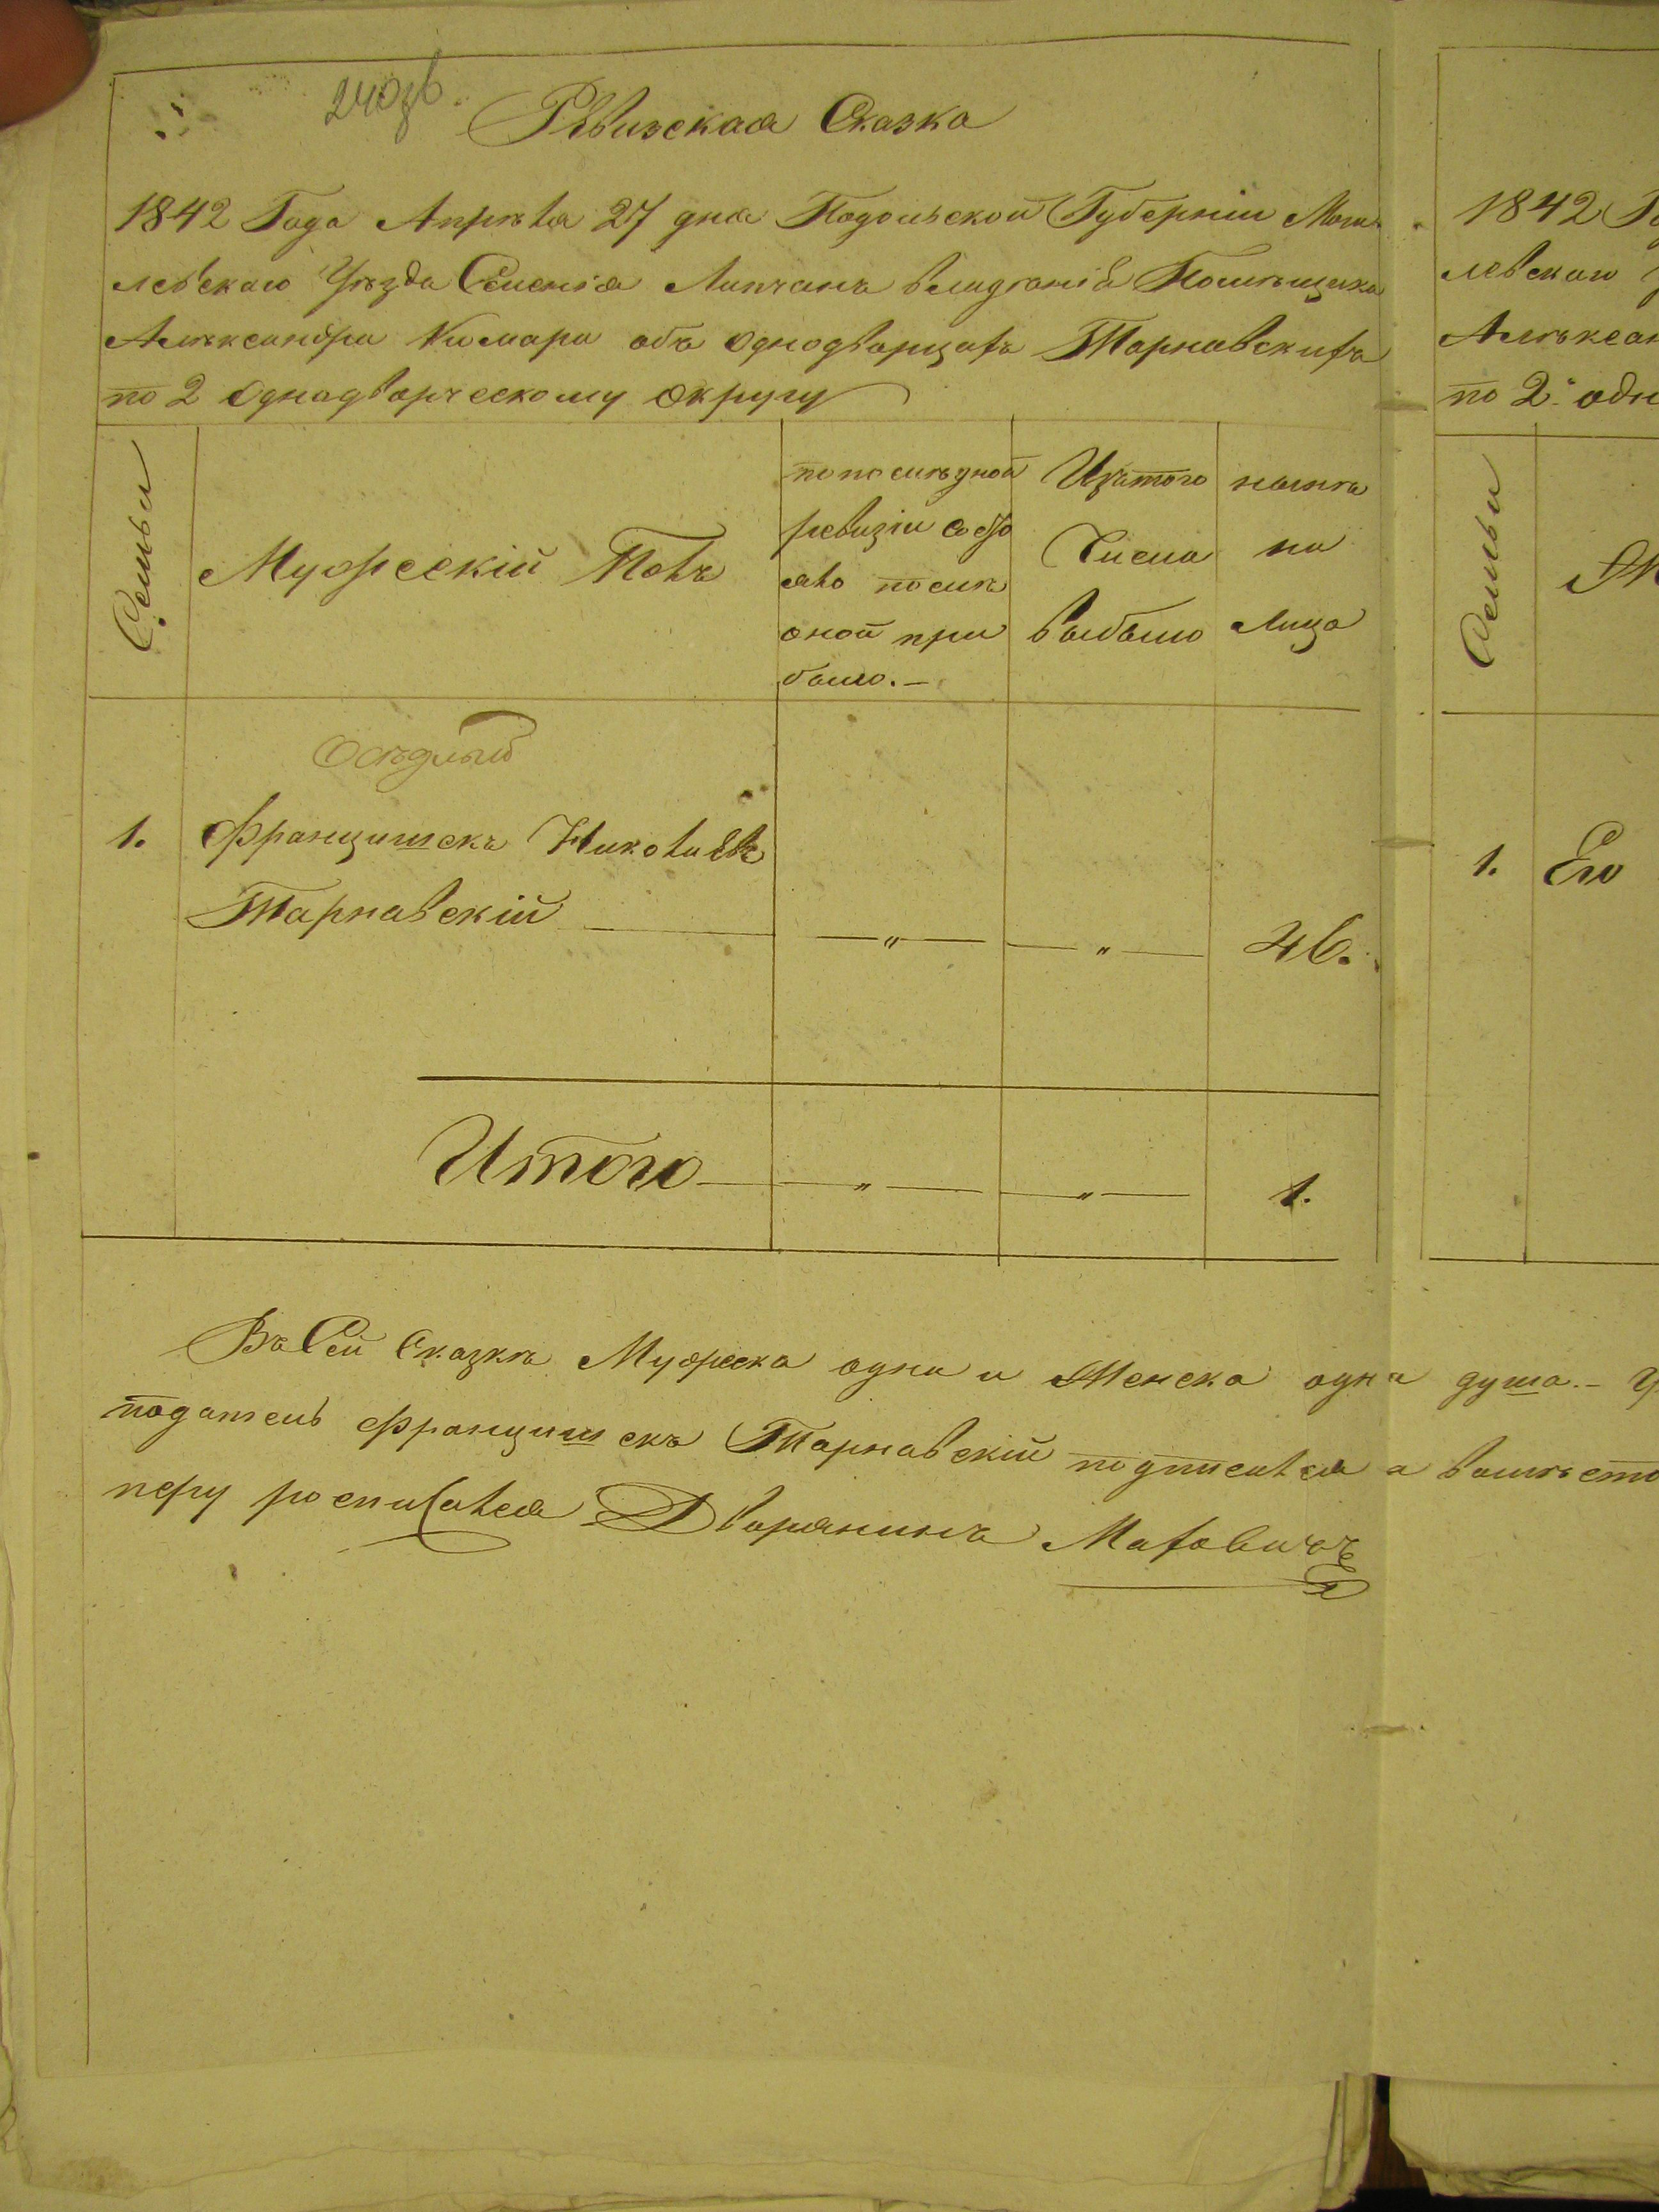 240зв.
Рѣвизская Сказка
1842 Года Апрѣля 27 дня Подольской Губерніи Моги
левскаго Уѣзда Селенія Липчанъ Помѣщика
Алѣксандра Комара объ Однодворцахъ Тарнавскихъ
по 2 Однадворческому округу
Семьи
Мужескій Полъ
по послѣдной
ревизіи состо
яло послѣ
оной при
было.—
Изътого
Числа
выбыло
нынѣ
на
Лицо
Осѣдлый
1. Францишекъ
Тарнавскій — „ — — „ — 46.
Итого — „ — — „ — 1.
Въ Сей Сказкѣ Мужеска одна и Женска одна душа.—
податель Францишекъ Тарнавскій а вмѣсто
неру росписался Дворянинъ Маховичъ
1842
левскаго
Алѣксан
по 2. одн
Семьи
1. Его